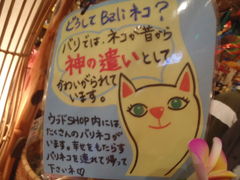 どうしてBaliネコ?
バリでは、ネコが昔から
神の遣いとして
かわいがられて
います。
ウブドSHOP内には
たくさんのバリネコが
います。幸せをもたらす
バリネコを連れて帰って
下さいネ♡